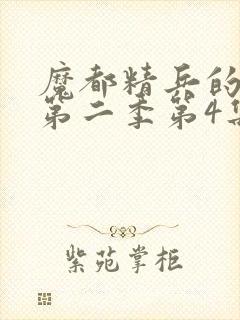 魔都精兵的
第二季第4集
紫苑掌柜